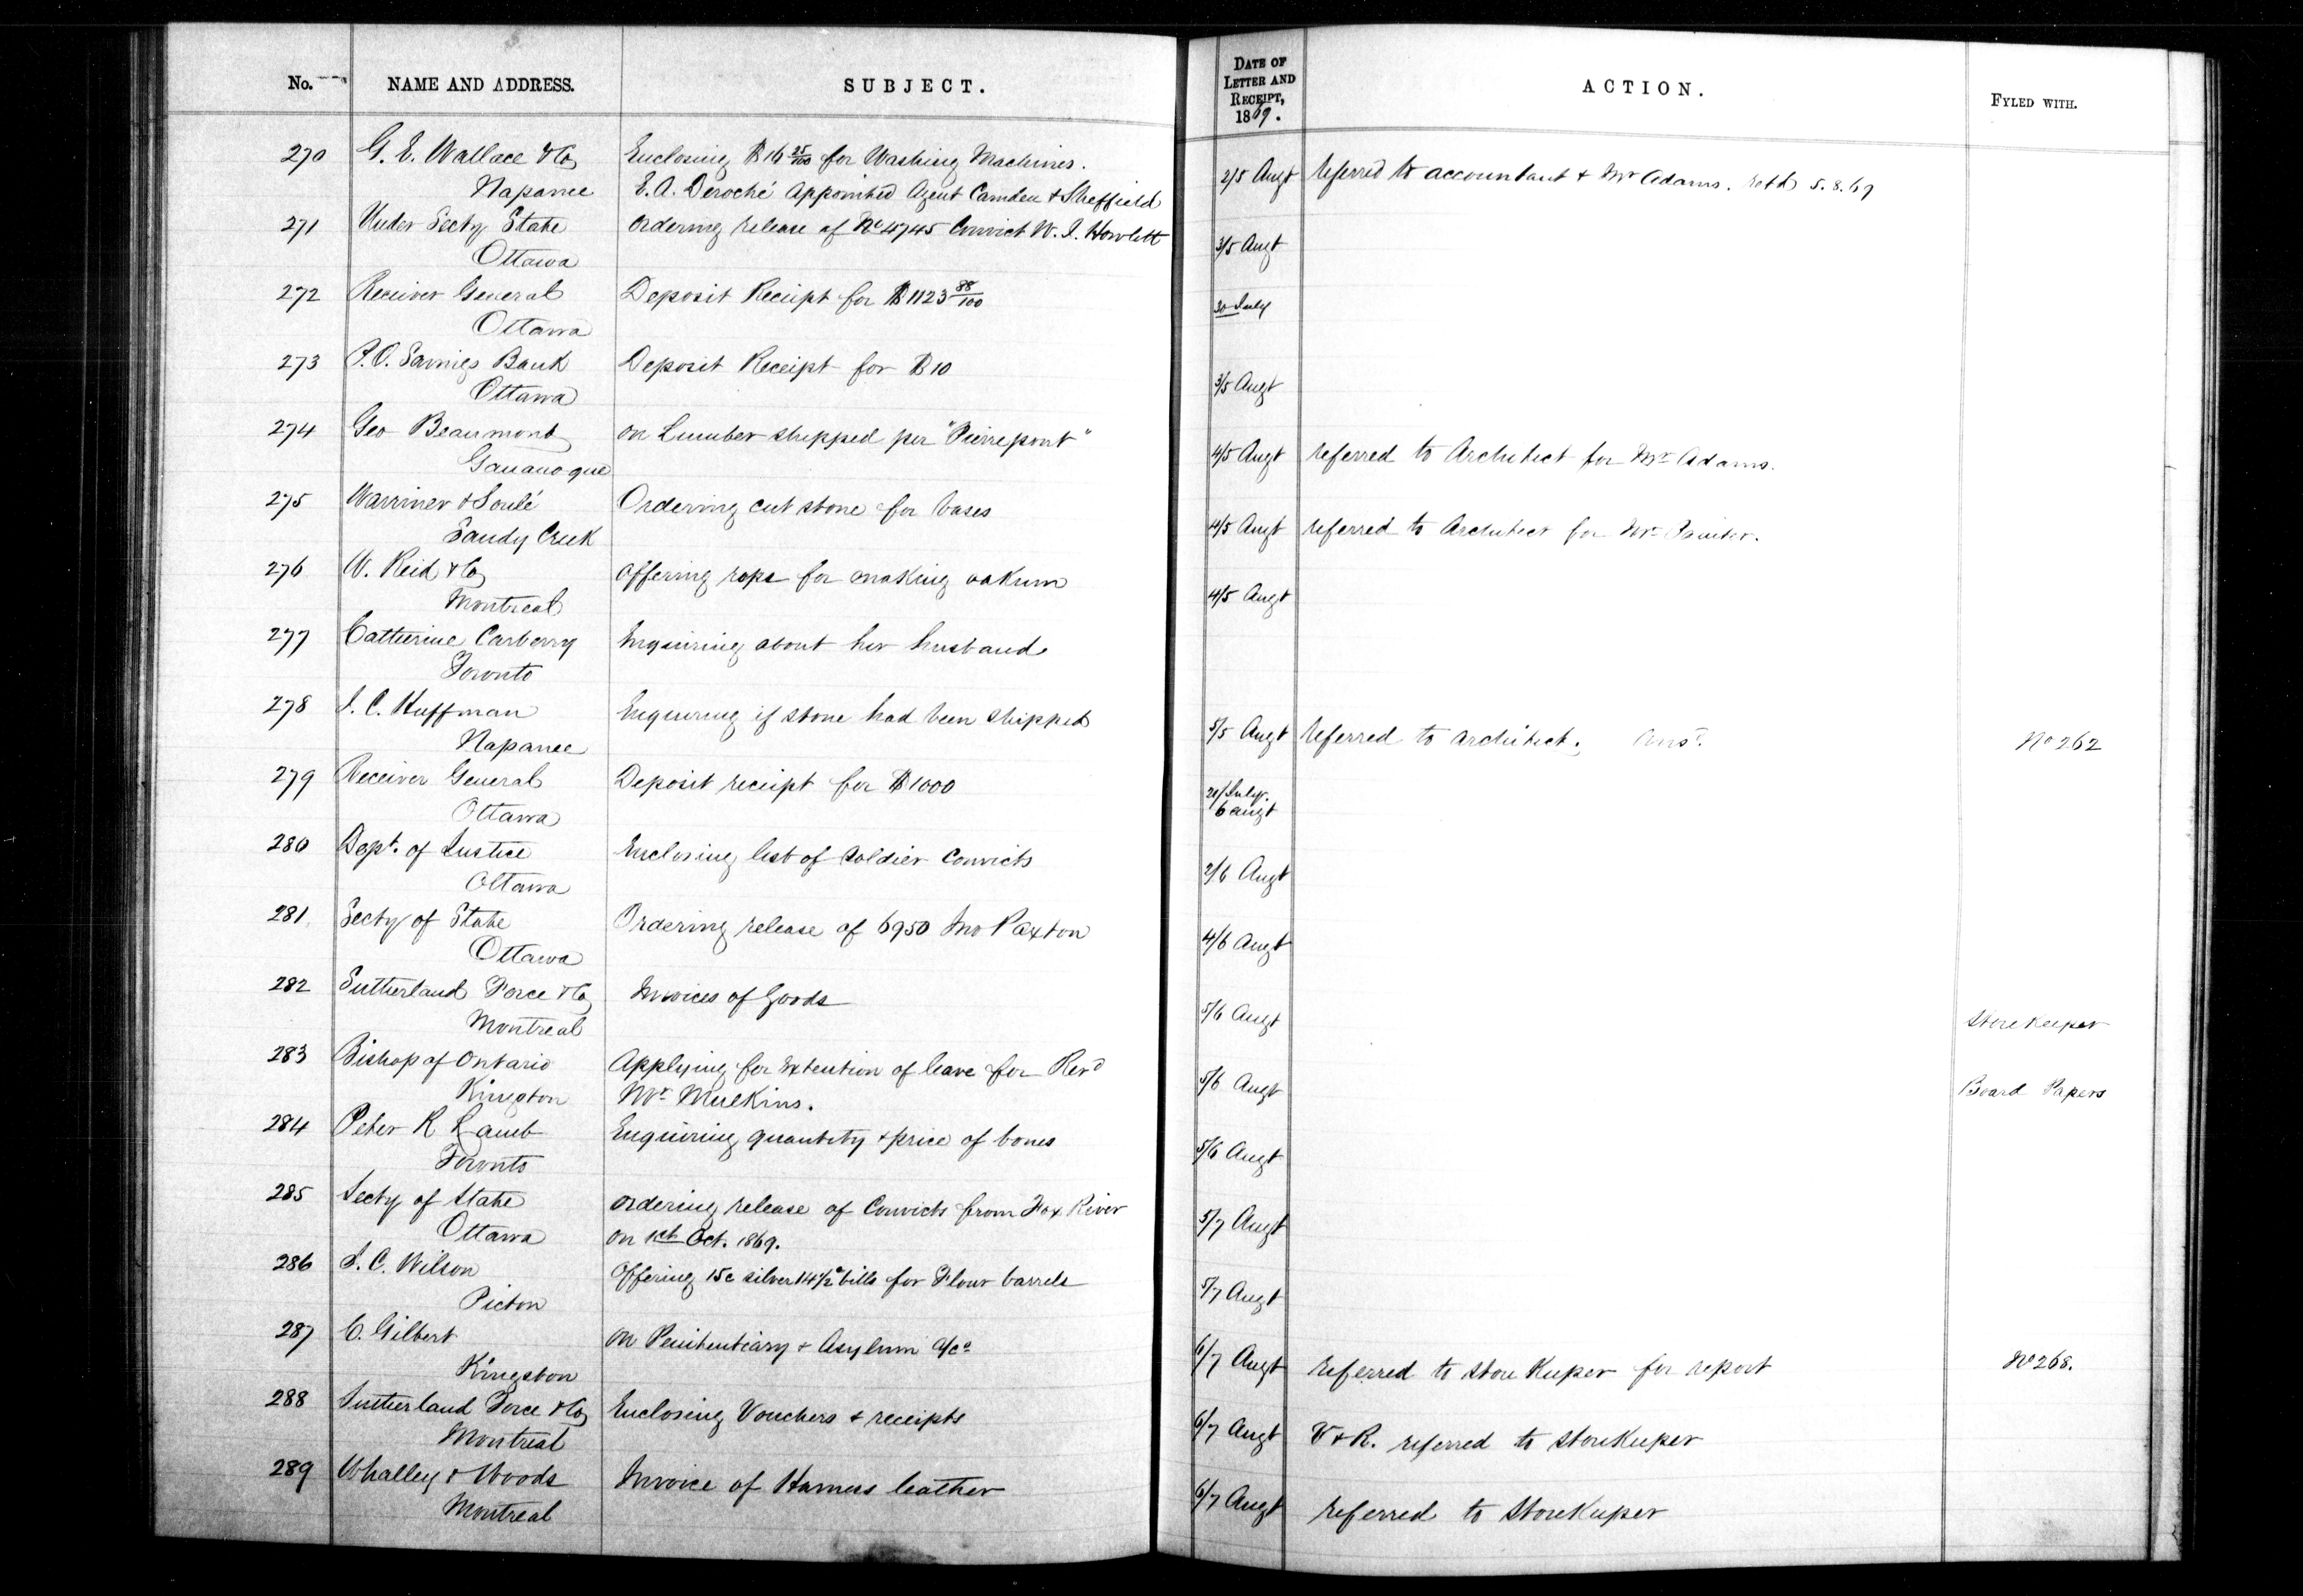 No. NAME AND ADDRESS. SUBJECT. DATE OF LETTER AND RECEIPT, 1869. ACTION. FYLED WITH.
270 G. E. Wallace & Co Enclosing $16 25/100 for Washing Machines. 2/5 Augt referred to accountant & Mr Adams. retd 5.8.69
Napanee E. A. Deroché appointed Agent Camden & Sheffield
271 Under Secty State ordering release of No 4745 Convict W. J. Howlett 3/5 Augt
Ottawa
272 Receiver General Deposit Receipt for $1123 88/100 30 July
Ottawa
273 P.O. Savings Bank Deposit Receipt for $10 3/5 Augt
Ottawa
274 Geo Beaumont on Lumber shipped per "Pierrepont" 4/5 Augt referred to Architect for Mr Adams.
Gananoque
275 Warriner & Soulé Ordering cut stone for bases 4/5 Augt referred to Architect for Mr
Sandy Creek
276 W. Reid & Co offering rope for making oakum 4/5 Augt
Montreal
277 Catherine Carberry Enquiring about her husband
Toronto
278 J. C. Huffman Enquiring if stone had been shipped 5/5 Augt referred to architect; Ansd. No 262
Napanee
279 Receiver General Deposit receipt for $1000 July 6 augt
Ottawa
280 Dept. of Justice Enclosing list of Soldier Convicts 2/6 Augt
Ottawa
281 Secty of State Ordering release of 6950 Jno Paxton 4/6 Augt
Ottawa
282 Sutherland Force & Co Invoices of Goods 5/6 Augt Storekeeper
Montreal
283 Bishop of Ontario Applying for extention of leave for Revd 5/6 Augt Board Papers
Kingston Mr Mulkins.
284 Peter R Lamb Enquiring quantity & price of bones 5/6 Augt
Toronto
285 Secty of State ordering release of Convicts from Fox River 5/7 Augt
Ottawa on 1st Oct. 1869.
286 J. C. Wilson Offering 15c silver 14½c bills for Flour barrels 5/7 Augt
Picton
287 C. Gilbert on Penitentiary & Asylum a/cs 6/7 Augt referred to Store Keeper for report No 268.
Kingston
288 Sutherland Force & Co Enclosing Vouchers & receipts 6/7 Augt V & R. referred to Storekeeper
Montreal
289 Whalley & Woods Invoice of Harness leather 6/7 Augt referred to Storekeeper
Montreal